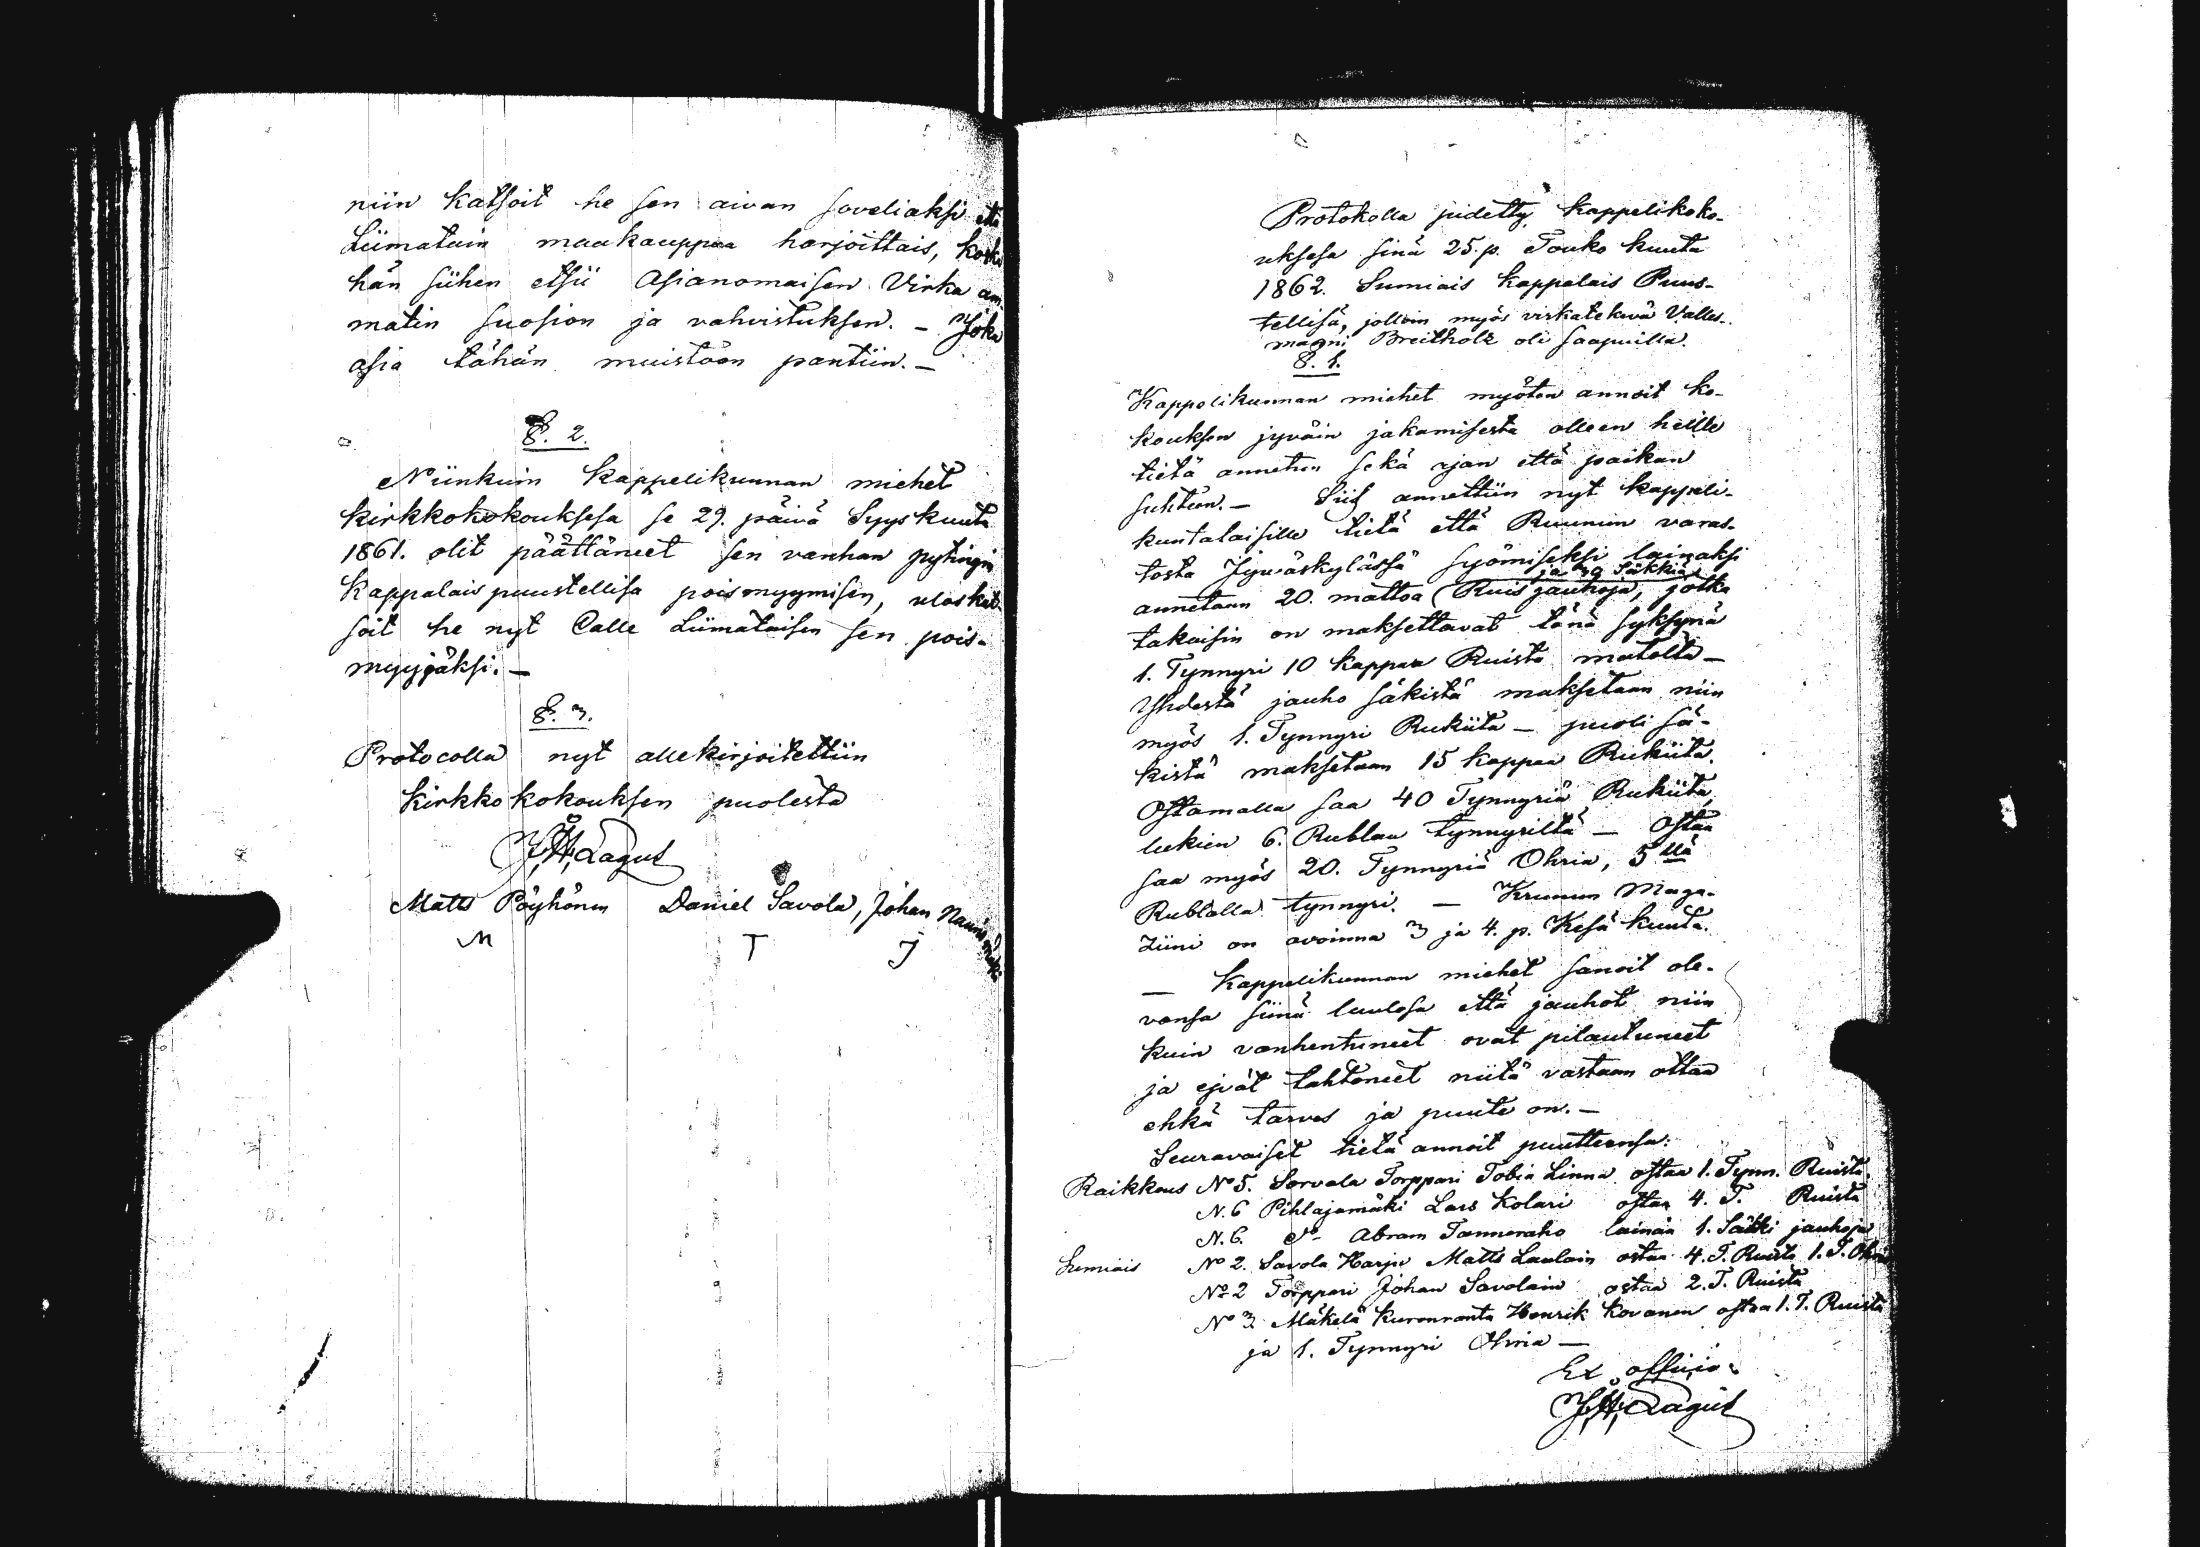 niin katsoit he sen aivan soveliaksi että
Liimatain maakauppaa harjoittais, koska
hän siihen etsii Asianomaisen Virka am-
matin suosion ja vahvistuksen. - Joka
asia tähän muistöön pantiin. -
§. 2.
Niinkuin Kappelikunnan miehet
kirkkokokouksesa se 29. päivä Syyskuuta
1861. olit päättäneet sen vanhan pytingin
Kappalais puustellisa poismyymisen, uloskat-
soit he nyt Calle Liimataisen sen pois-
myyjäksi. -
§. 3.
Protocolla nyt allekirjoitettiin
Kirkkokokouksen puolesta
J. H. Lagus
Matts Pöyhönen Daniel Savola, Johan
M T J
Protokolla pidetty kappelikoko-
uksesa sinä 25. p. Touko kuuta
1862. Sumiais Kappalais Puus-
tellisä, jolloin myös virkatekevä Valles-
manni Breitholz oli saapuilla.
§. 1.
Kappelikunnan miehet myöten annoit ko-
kouksen jyväin jakamisesta olleen heille
tietä annetun sekä ajan että paikan
suhteen. - Siis annettiin nyt kappeli-
kuntalaisille tietä että Ruunun varas-
tosta Jyväskylässä syömiseksi lainaksi
ja 39 Säkkiä
annetaan 20. mattoa Ruis jauhoja, jotka
takaisin on maksettavat tänä syksynä
1. Tynnyri 10 kappaa Ruista matolta -
Yhdestä jauho säkistä maksetaan niin
myös 1. Tynnyri Rukiita - puoli sä-
kistä maksetaan 15 kappaa Rukiita.
Ostamalla saa 40 Tynnyriä Rukiita,
lukien 6. Rublaa tynnyriltä - Ostaa
saa myös 20. Tynnyriä Ohria, 5llä
Rublalla tynnyri. - Kruunun Maga-
ziini on avoinna 3 ja 4. p. Kesä kuuta.
- Kappelikunnan miehet sanoit ole-
vansa siinä luulosa että jauhot niin
kuin vanhentuneet ovat pilautuneet
ja ejvät tahtoneet niitä vastaan ottaa
ehkä tarves ja puute on. -
Seuravaiset tietä annoit puutteensa:
Raikkaus No 5. Sorvala Torppari Tobia Linna ostaa 1. Tynn. Ruista.
N. 6 Pihlajamäki Lars Kolari ostaa 4. T. Ruista
N. 6. Abram Tanneraho lainaa 1. Säkki jauhoja
Sumiais No 2. Savola Harju Matts Laulain ostaa 4. T. Ruista 1. T. Ohria
No 2 Torppari Johan Savolain ostaa 2. T. Ruista
No 3. Mäkelä Kuronranta Henrik Kovanen ostaa 1. T. Ruista
ja 1. Tynnyri Ohria -
Ex officio
J. H. Lagus